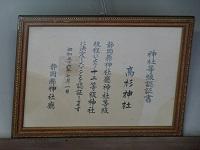 神社等級認証書
高杉神社
静岡縣神社廳神社等級
規程により十二等級神社
に決定したことを認証します
静岡縣神社廳